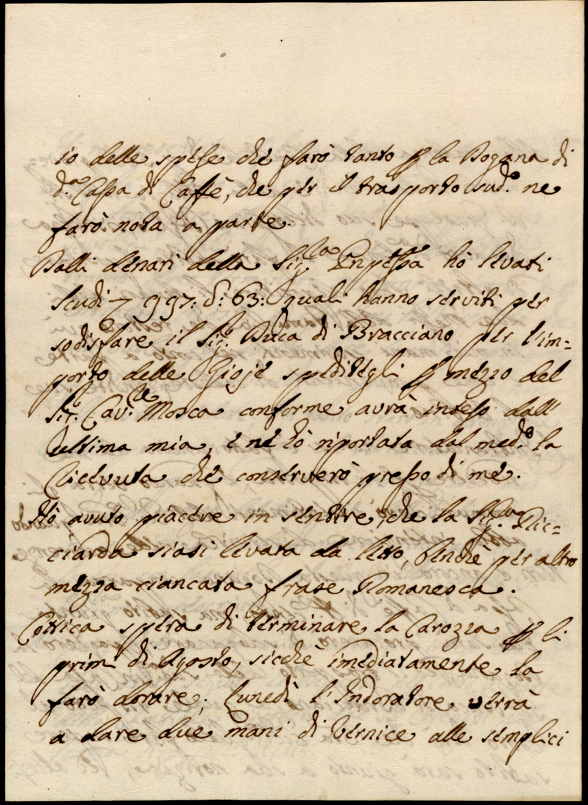 io delle spese che farò tanto p la Dogana di
d.ª Cassa di Caffè, che per il trasporto sud.º ne
farò nota a parte.
Dalli denari della Sig.ra Inpessa hò levati
Scudi 7 997: d: 63: quali hanno serviti per
sodisfare il Sig.r Duca di Bracciano per l'im=
porto delle Gioje speditegli p mezzo del
Sig.r Cav.re Mosca conforme avrà inteso dall
ultima mia, e ne hò riportata dal med.º la
ricevuta che conserverò presso di me.
Hò avuto piacere in sentire, che la Sig.ra Ric=
ciarda siasi levata da letto, benche per altro
mezza ciancata frase Romanesca.
Cottica spera di terminare la Carozza p li
primi di Agosto, sicchè imediatamente la
farò dorare; Lunedì l'Indoratore verrà
a dare due mani di Vernice alle semplici